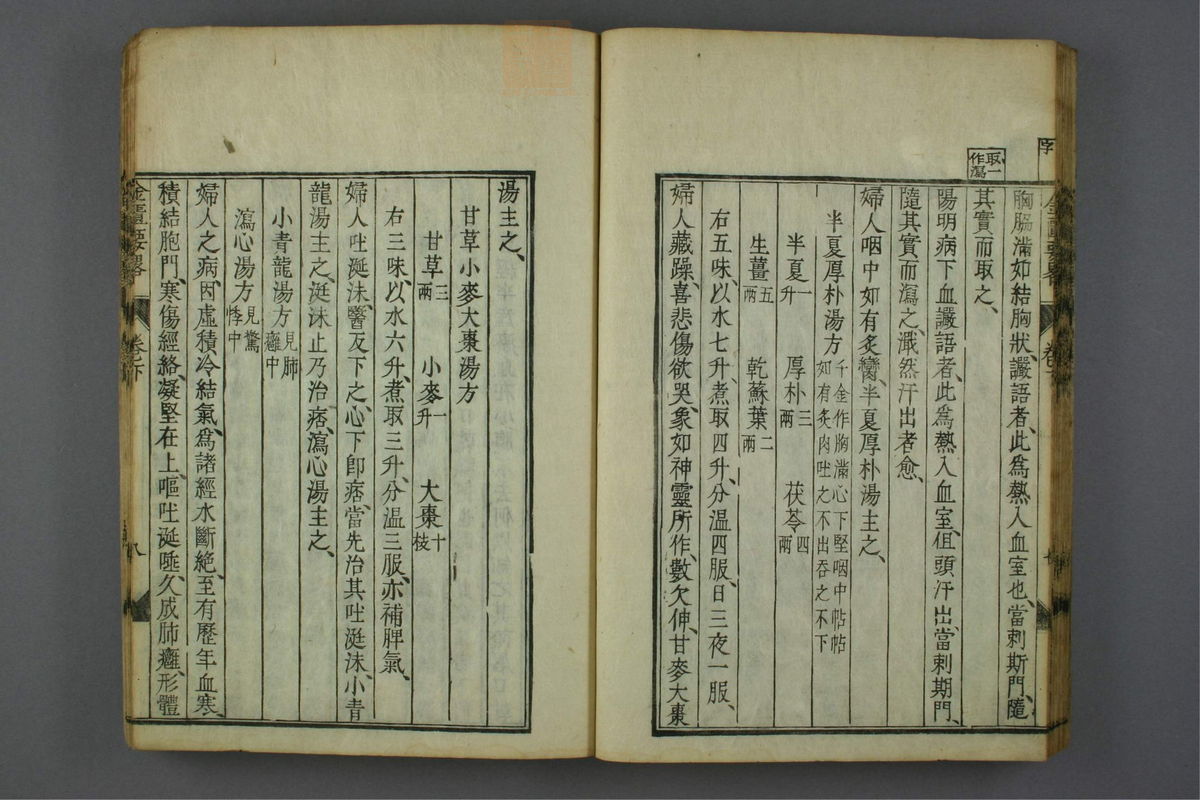 取一
作瀉
胸脇滿如結胸狀讝語者、此爲熱入血室也、當刺期門、隨
其實而取之、
陽明病下血讝語者、此爲熱入血室、但頭汗出、當刺期門、
隨其實而瀉之、濈然汗出者愈、
婦人咽中如有炙臠、半夏厚朴湯主之、
半夏厚朴湯方 千金作胸滿心下堅咽中帖帖如有炙肉吐之不出吞之不下
半夏一升 厚朴三兩 茯苓四兩
生薑五兩 乾蘇葉二兩
右五味、以水七升、煮取四升、分温四服、日三夜一服、
婦人藏躁、喜悲傷欲哭、象如神靈所作、數欠伸、甘麥大棗
湯主之、
甘草小麥大棗湯方
甘草三兩 小麥一升 大棗十枚
右三味、以水六升、煮取三升、分温三服、亦補脾氣、
婦人吐涎沫、醫反下之、心下卽痞、當先治其吐涎沫、小青
龍湯主之、涎沫止、乃治痞、瀉心湯主之、
小青龍湯方見肺癰中
瀉心湯方見驚悸中
婦人之病、因虛積冷結氣、爲諸經水斷絶、至有歷年血寒、
積結胞門、寒傷經絡、凝堅在上、嘔吐涎唾、久成肺癰、形體
金匱要畧 卷下 八